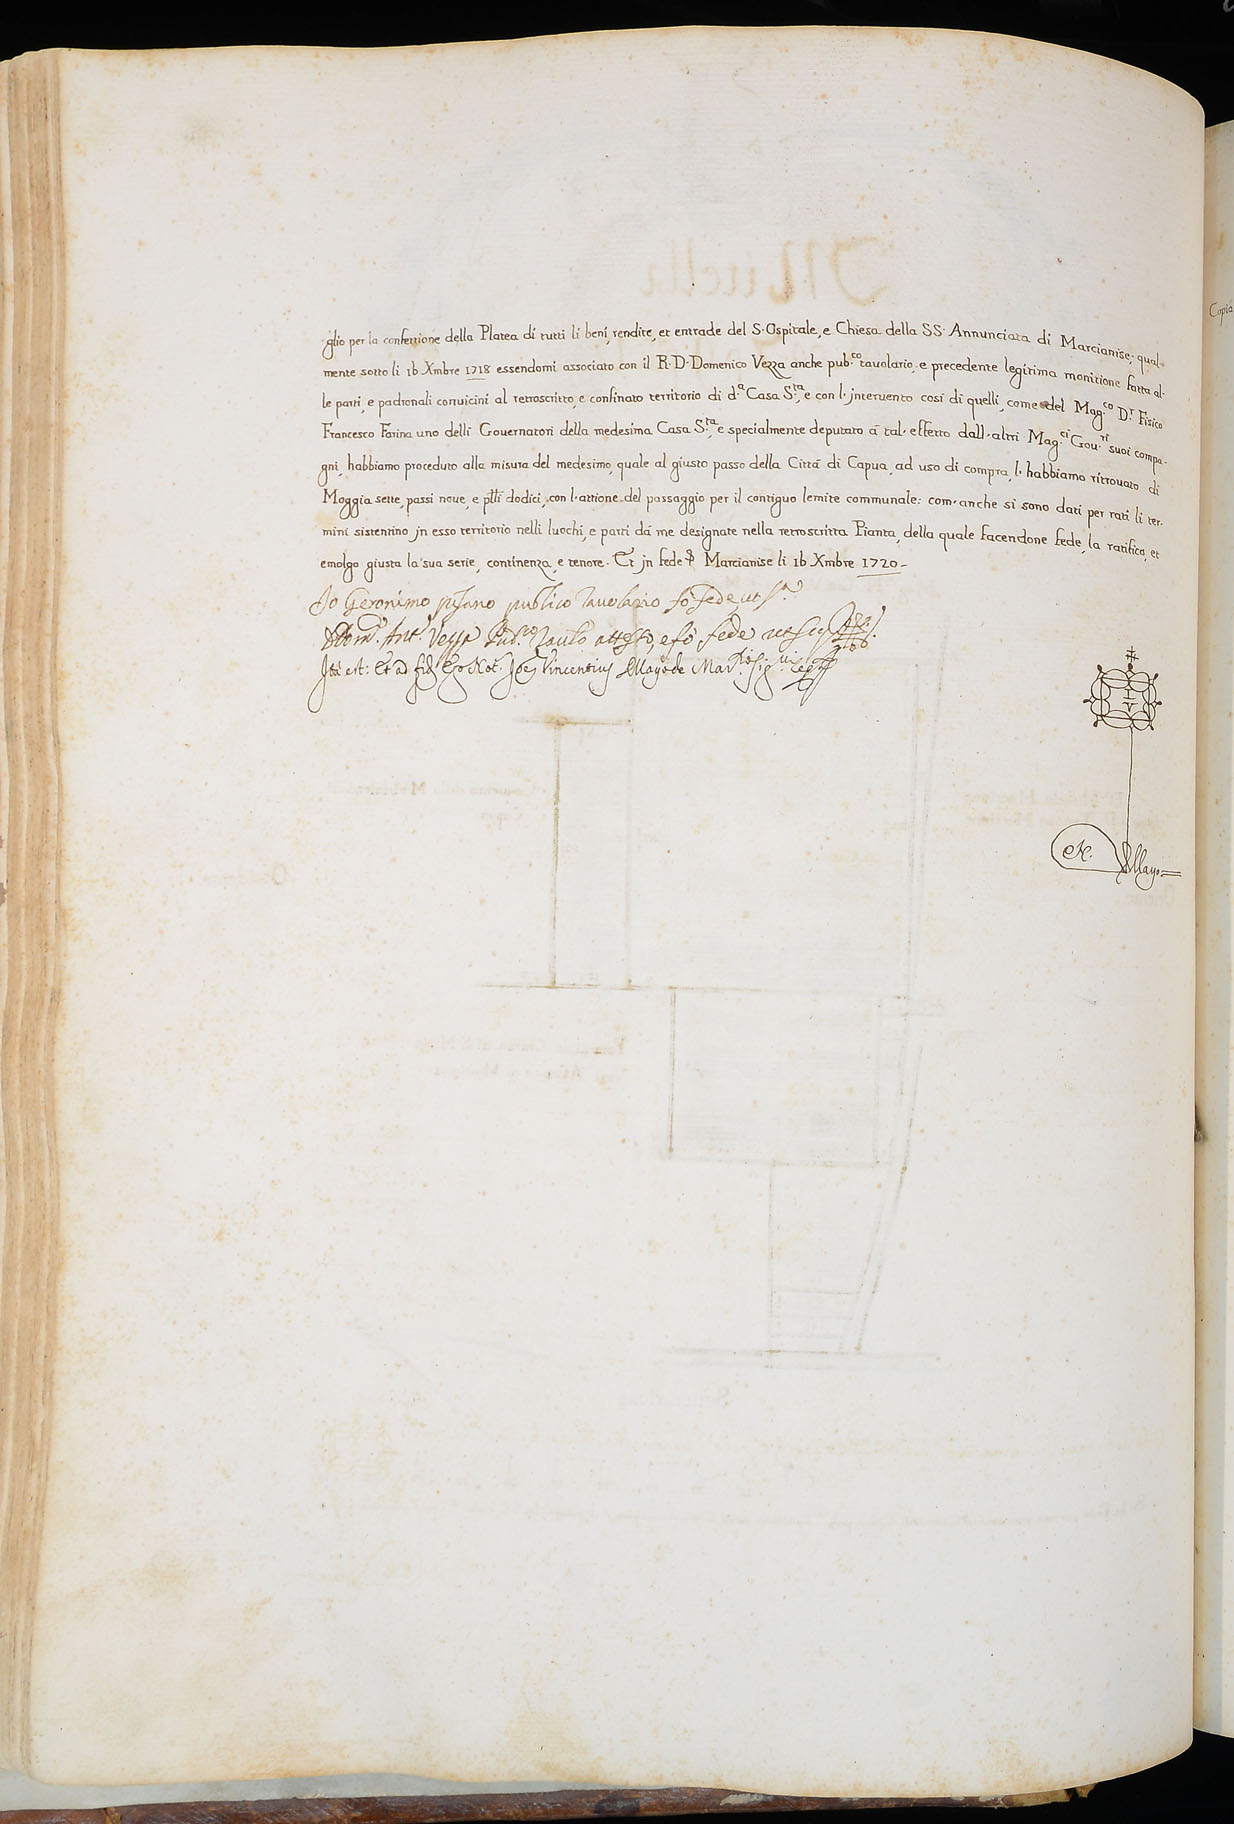 glio per la confettione della Platea di tutti li beni, rendite, et entrade del S. Ospitale, e Chiesa della SS. Annunciata di Marcianise; qual-
mente sotto li 16 Xmbre 1718 essendomi associato con il R. D. Domenico Vezza anche pub.co tavolario, e precedente legitima monitione fatta al-
le parti, e padronali convicini al retroscritto, e confinato territorio di d.a Casa S.ta, e con l'intervento così di quelli, come del Mag.co D.r Fisico
Francesco Farina uno delli Governatori della medesima Casa S.ta, e specialmente deputato à tal' effetto dall'altri Mag.ci Gov.ri suoi compa-
gni, habbiamo proceduto alla misura del medesimo, quale al giusto passo della Città di Capua, ad uso di compra, l'habbiamo ritrovato di
Moggia sette, passi nove, e p̃tti dodici, con l'attione del passaggio per il contiguo lemite communale: com'anche si sono dati per rati li ter-
mini sistentino in esso territorio nelli luochi, e parti da me designate nella retroscritta Pianta, della quale facendone fede, la ratifico, et
emolgo giusta la sua serie, continenza, e tenore. Et in fede Marcianise li 16 Xmbre 1720-
Io Geronimo pisano publico tavolario fò fede ut s.a
Dom.co Ant.o Vezza Pub.co Tavol.o attesto, e fò fede ut s.a
Ita est: Et ad fid. Ego Not. Joes Vincentius Mayo de Mar.
N. Mayo
Copia